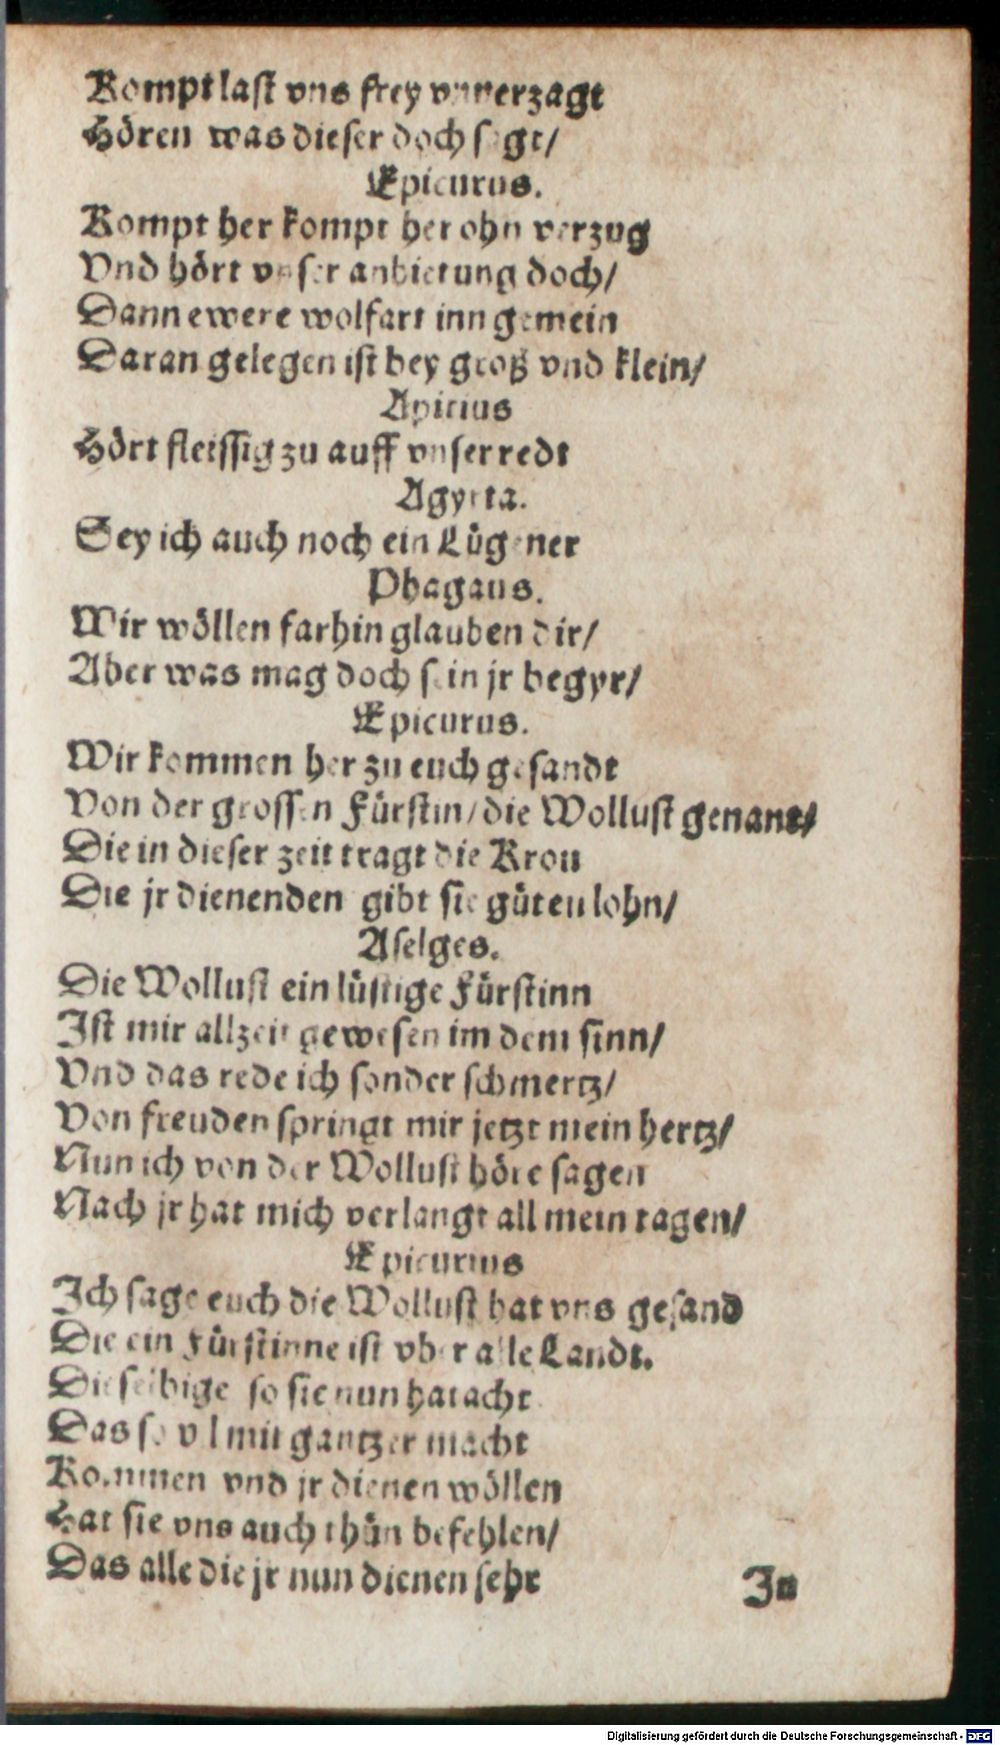 Kompt last vns frey vnuerzagt
Hören was dieser doch sagt/
Epicurus.
Kompt her kompt her ohn verzug
Vnd hört vnser anbietung doch/
Dann ewere wolfart inn gemein
Daran gelegen ist bey groß vnd klein/
Apicius
Hört fleissig zu auff vnser redt
Agyrta.
Sey ich auch noch ein Lügener
Phagaus.
Wir wöllen farhin glauben dir/
Aber was mag doch sein jr begyr/
Epicurus.
Wir kommen her zu euch gesandt
Von der grossen Fürstin/die Wollust genant/
Die in dieser zeit tragt die Kron
Die jr dienenden gibt sie güten lohn/
Aselges.
Die Wollust ein lüstige Fürstinn
Ist mir allzeit gewesen im dem sinn/
Vnd das rede ich sonder schmertz/
Von freuden springt mir jetzt mein hertz/
Nun ich von der Wollust höre sagen
Nach jr hat mich verlangt all mein tagen/
Epicurius
Ich sage euch die Wollust hat vns gesand
Die ein Fürstinne ist vber alle Landt.
Dieselbige so sie nun hat acht
Das so vil mit gantzer macht
Kommen vnd jr dienen wöllen
Hat sie vns auch thün befehlen/
Das alle die jr nun dienen sehr
In
Digitalisierung gefördert durch die Deutsche Forschungsgemeinschaft - DFG